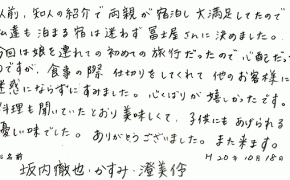 以前、知人の紹介で両親が宿泊し大満足してたので
私達も泊まる宿は迷わず冨士屋さんに決めました。
今回は娘を連れての初めての旅行だったので心配だった
のですが、食事の際仕切りをしてくれて他のお客様に
迷惑にならずにすみました。心くばりが嬉しかったです。
料理も聞いていたとおり美味しくて、子供にもあげられる
優しい味でした。ありがとうございました。また来ます。
お名前
H20年10月18日
坂内徹也・かすみ・澄美伶